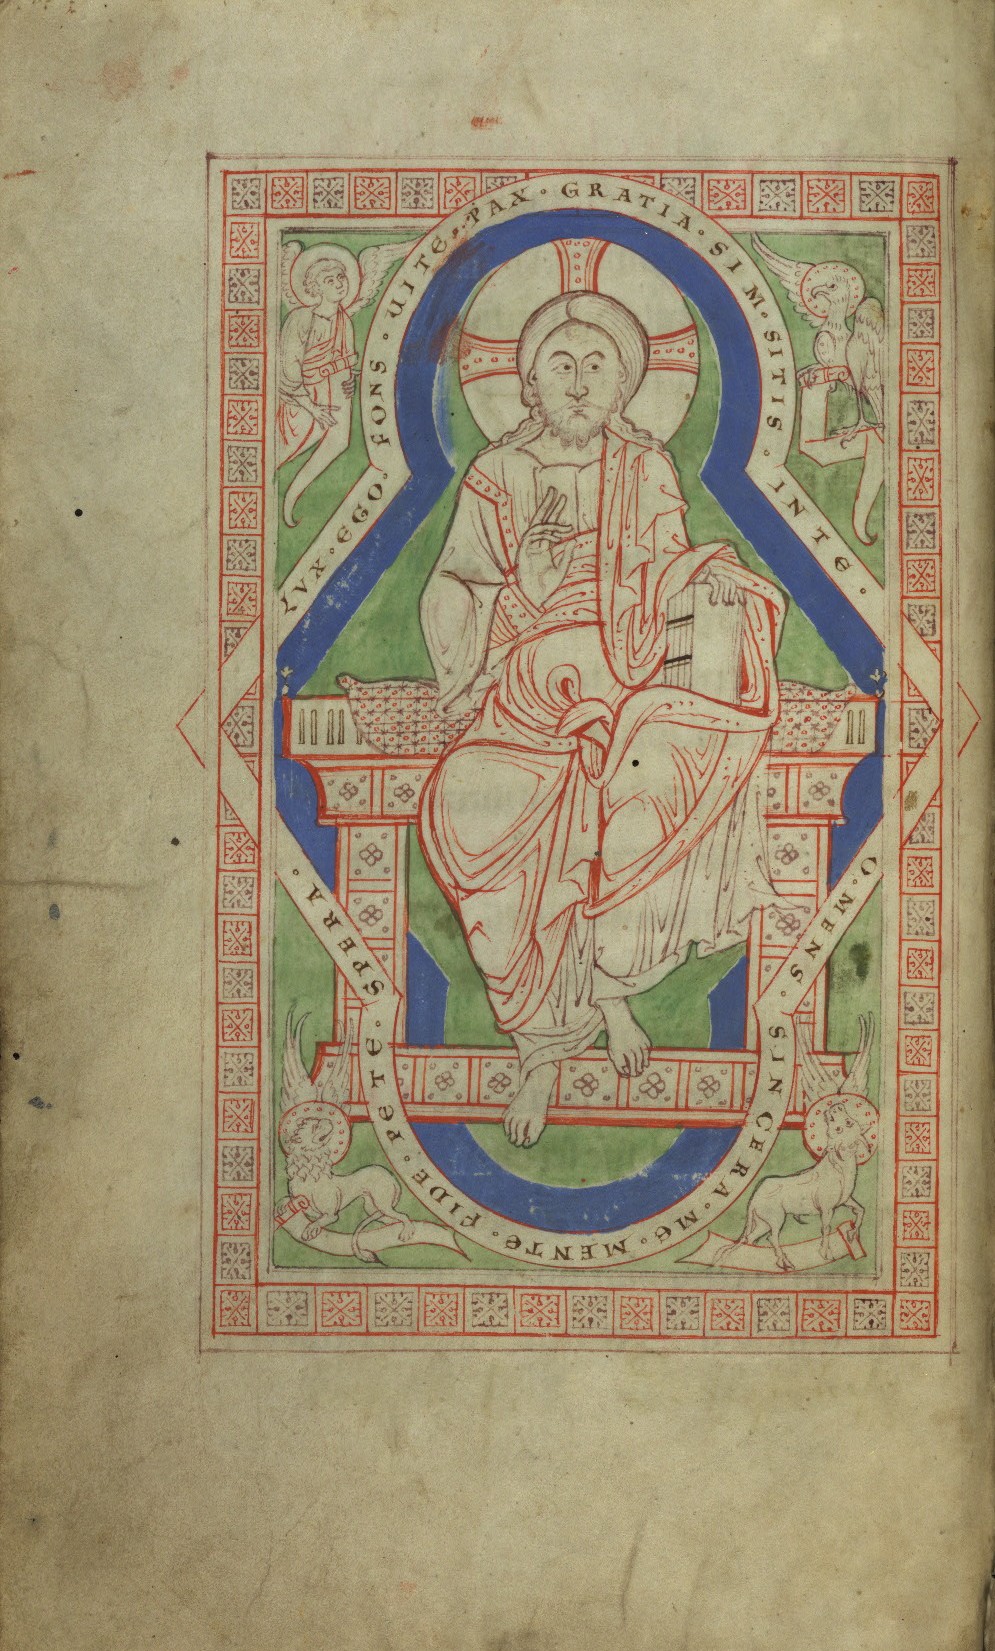 LVX · EGO · FONS · UITE · PAX · GRATIA · SIM · SITIS · IN TE ·
O · MENS · SINCERA · ME · MENTE · FIDE · PETE · SPERA ·